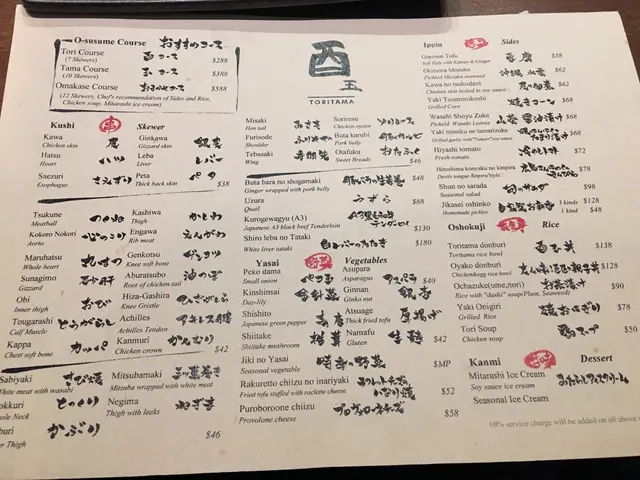 O-susume Course おすすめコース
Tori Course 酉コース $288
(7 Skewers)
Tama Course 玉コース $388
(10 Skewers)
Omakase Course おまかせコース $588
(12 Skewers, Chef's recommendation of Sides and Rice,
Chicken soup, Mitarashi ice cream)
酉玉
TORITAMA
Kushi 串 Skewer
Kawa
Chicken skin
Ginkawa 銀皮
Gizzard skin
Hatsu ハツ
Heart
Leba レバー
Liver
Saezuri さえずり
Esophagus
Peta ペタ
Thick back skin
$38
Tsukune つくね
Meatball
Kashiwa かしわ
Thigh
Kokoro Nokori 心のこり
Aorta
Engawa えんがわ
Rib meat
Maruhatsu 丸ハツ
Whole heart
Genkotsu ゲンコツ
Knee soft bone
Sunagimo 砂肝
Gizzard
Aburatsubo 油つぼ
Root of chicken tail
Obi おび
Inner thigh
Hiza-Gashira ひざがしら
Knee Gristle
Tougarashi とうがらし
Calf Muscle
Achilles アキレス腱
Achilles Tendon
Kappa カッパ
Chest soft bone
Kanmuri かんむり
Chicken crown
$42
Sabiyaki さび焼
White meat with wasabi
Mitsubamaki 三ツ葉巻き
Mitzuba wrapped with white meat
okkuri とっくり
hole Neck
Negima ねぎま
Thigh with leeks
buri かぶり
er Thigh
$46
Misaki みさき
Hen tail
Sonresu ソリレース
Chicken oyster
Furisode ふりそで
Shoulder
Buta karubi 豚カルビ
Pork belly
Tebasaki 手羽先
Wing
Otafuku おたふく
Sweet Breads
$46
Buta bara no shogamaki 豚バラの生姜巻 $48
Ginger wrapped with pork belly
Uzura うずら $88
Quail
Kurogewagyu (A3) A3黒毛和牛テンダーロイン $130
Japanese A3 black beef Tenderloin
Shiro leba no Tataki 白レバーのたたき $180
White liver tataki
Yasai 野菜 Vegetables
Peko dama ペコ玉
Small onion
Asupara アスパラ $40
Asparagus
Kinshinsai 金針菜
Day-lily
Ginnan 銀杏
Ginko nut
Shishito
Japanese green pepper
Atsuage 厚揚げ
Thick fried tofu
Shiitake 椎茸
Shiitake mushroom
Namafu 生麩 $42
Gluten
Jiki no Yasai 時季の野菜 $MP
Seasonal vegetable
Rakuretto chiizu no inariyaki ラクレットチーズいなり焼 $52
Fried tofu stuffed with raclette cheese
Puroboroone chiizu プロヴォローネチーズ $58
Provolone cheese
Ippin Sides
Goemon Tofu 豆腐 $58
Soft Tofu with Katsuo & Ginger
Okinawa Mozuku 沖縄水雲 $62
Pickled Mozuku seaweed
Kawa no tsukudani 皮の佃煮 $62
Chicken skin boiled in soy sauce
Yaki Toumorokoshi 焼きコーン $68
Grilled Corn
Wasabi Shoyu Zuke 山葵醤油漬 $68
Pickeld Wasabi Leaves
Yaki ninniku no tamarizuke $68
Grilled garlic with "Tamari" soy sauce
Hiyashi tomato 冷やしトマト $72
Fresh tomato
Hiroshima konyaku no kinpira $78
Devils tongue kinpira style
Shun no sarada 旬のサラダ $98
Seasonal salad
Jikasei oshinko 自家製お新香 3 kinds $128
Homemade pickles 1 kind $48
Oshokuji Rice
Toritama donburi 酉玉丼 $138
Toritama rice bowl
Oyako donburi $128
Chicken&egg rice bowl
Ochazuke(ume,nori) お茶漬け $90
Rice with "dashi" soup(Plum, Seaweed)
Yaki Onigiri 焼おにぎり $78
Grilled Rice
Tori Soup 鶏スープ $50
Chicken Soup $30
Kanmi 甘味 Dessert
Mitarashi Ice Cream みたらしアイスクリーム
Soy sauce ice cream
Seasonal Ice Cream
10% service charge will be added on all above